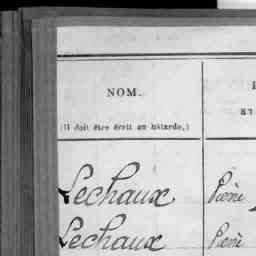 NOM.
(Il doit être écrit en bâtarde.)
Lechaux Pierre
Lechaux Pierre